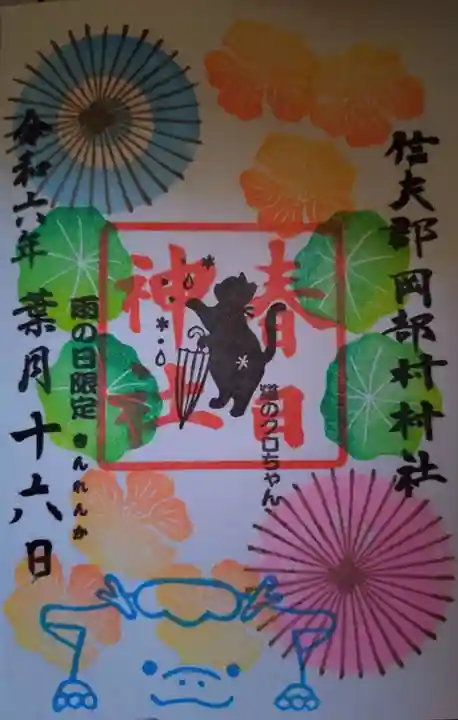 信夫郡岡部村村社
春日
神社
猫のクロちゃん
雨の日限定 きんれんか
令和六年 葉月十六日